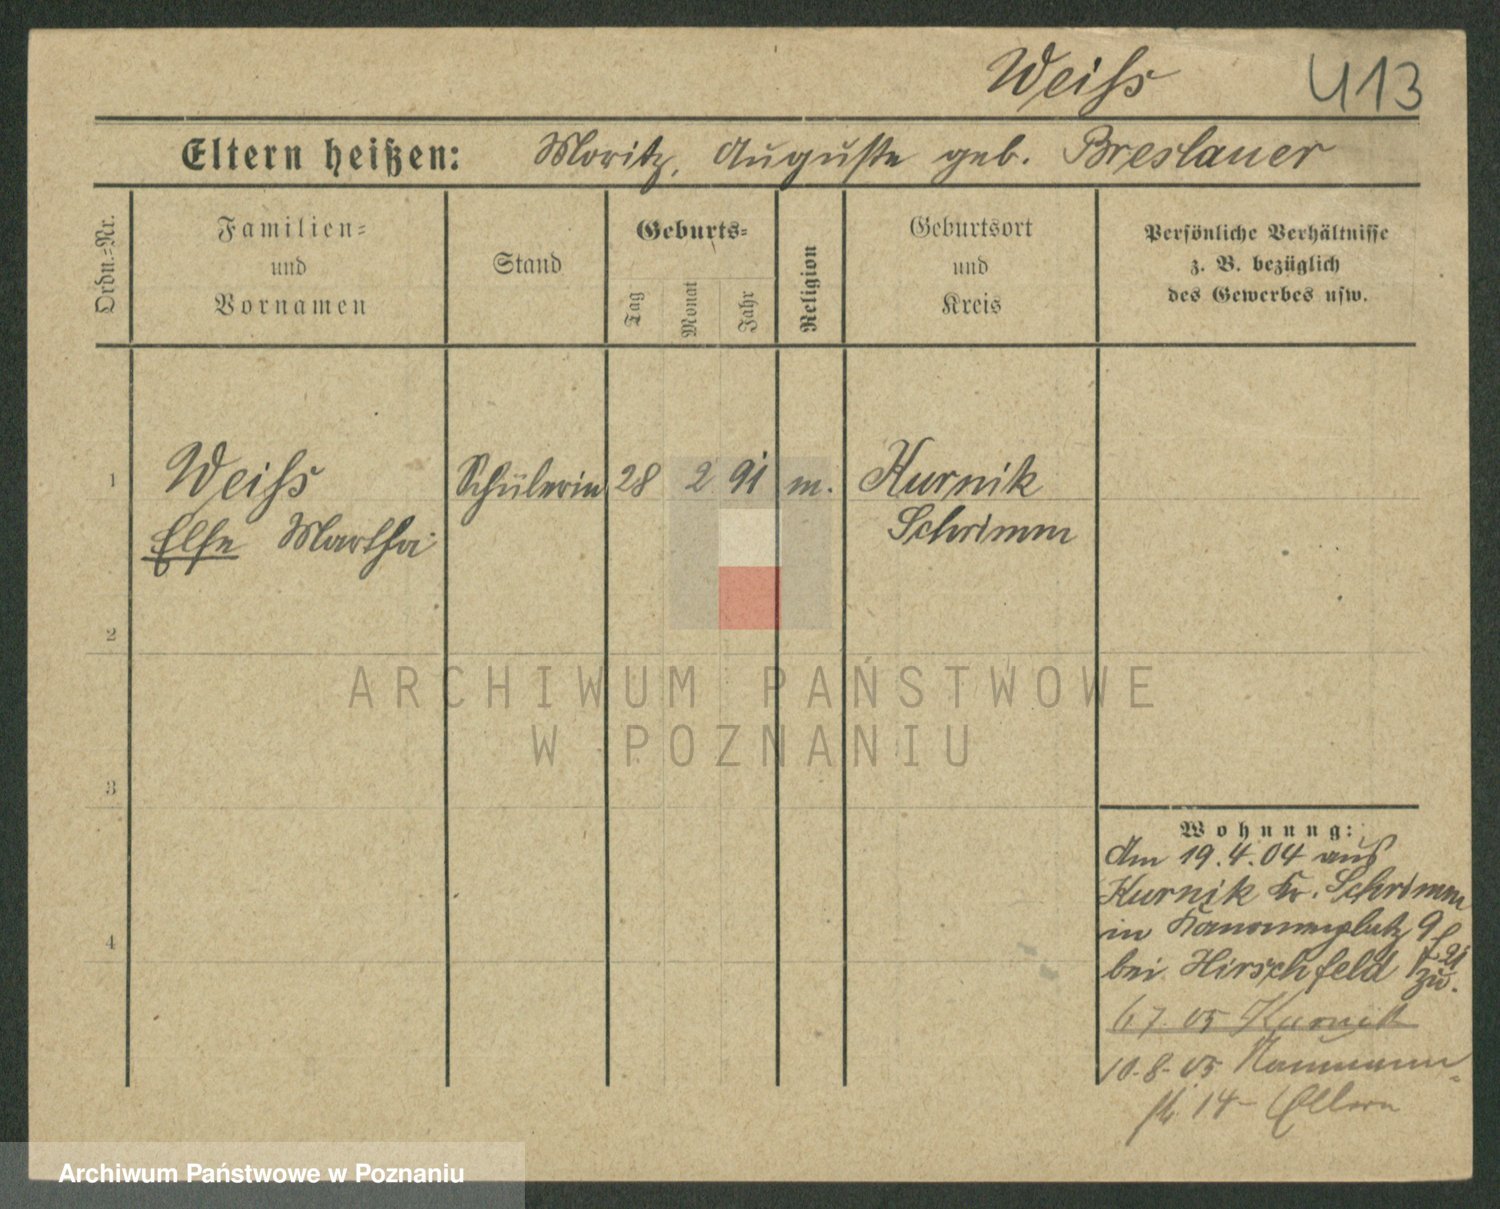 Weiß 413
Eltern heißen: Moritz, Auguste geb. Breslauer
Ordn.-Nr.
Familien-
und
Vornamen
Stand
Geburts-
Tag
Monat
Jahr
Religion
Geburtsort
und
Kreis
Persönliche Verhältnisse
z. B. bezüglich
des Gewerbes usw.
1 Weiß Schülerin 28 2 91 m. Kurnik
Else Martha Schrimm
2
3
4
ARCHIWUM PAŃSTWOWE
W POZNANIU
Wohnung:
Am 19.4.04 aus
Kurnik Kr. Schrimm
in Kanonenplatz 9
bei Hirschfeld zu.
6 7. 05 Kurnik
10.8.05 Naumann-
str. 14 - Eltern
Archiwum Państwowe w Poznaniu